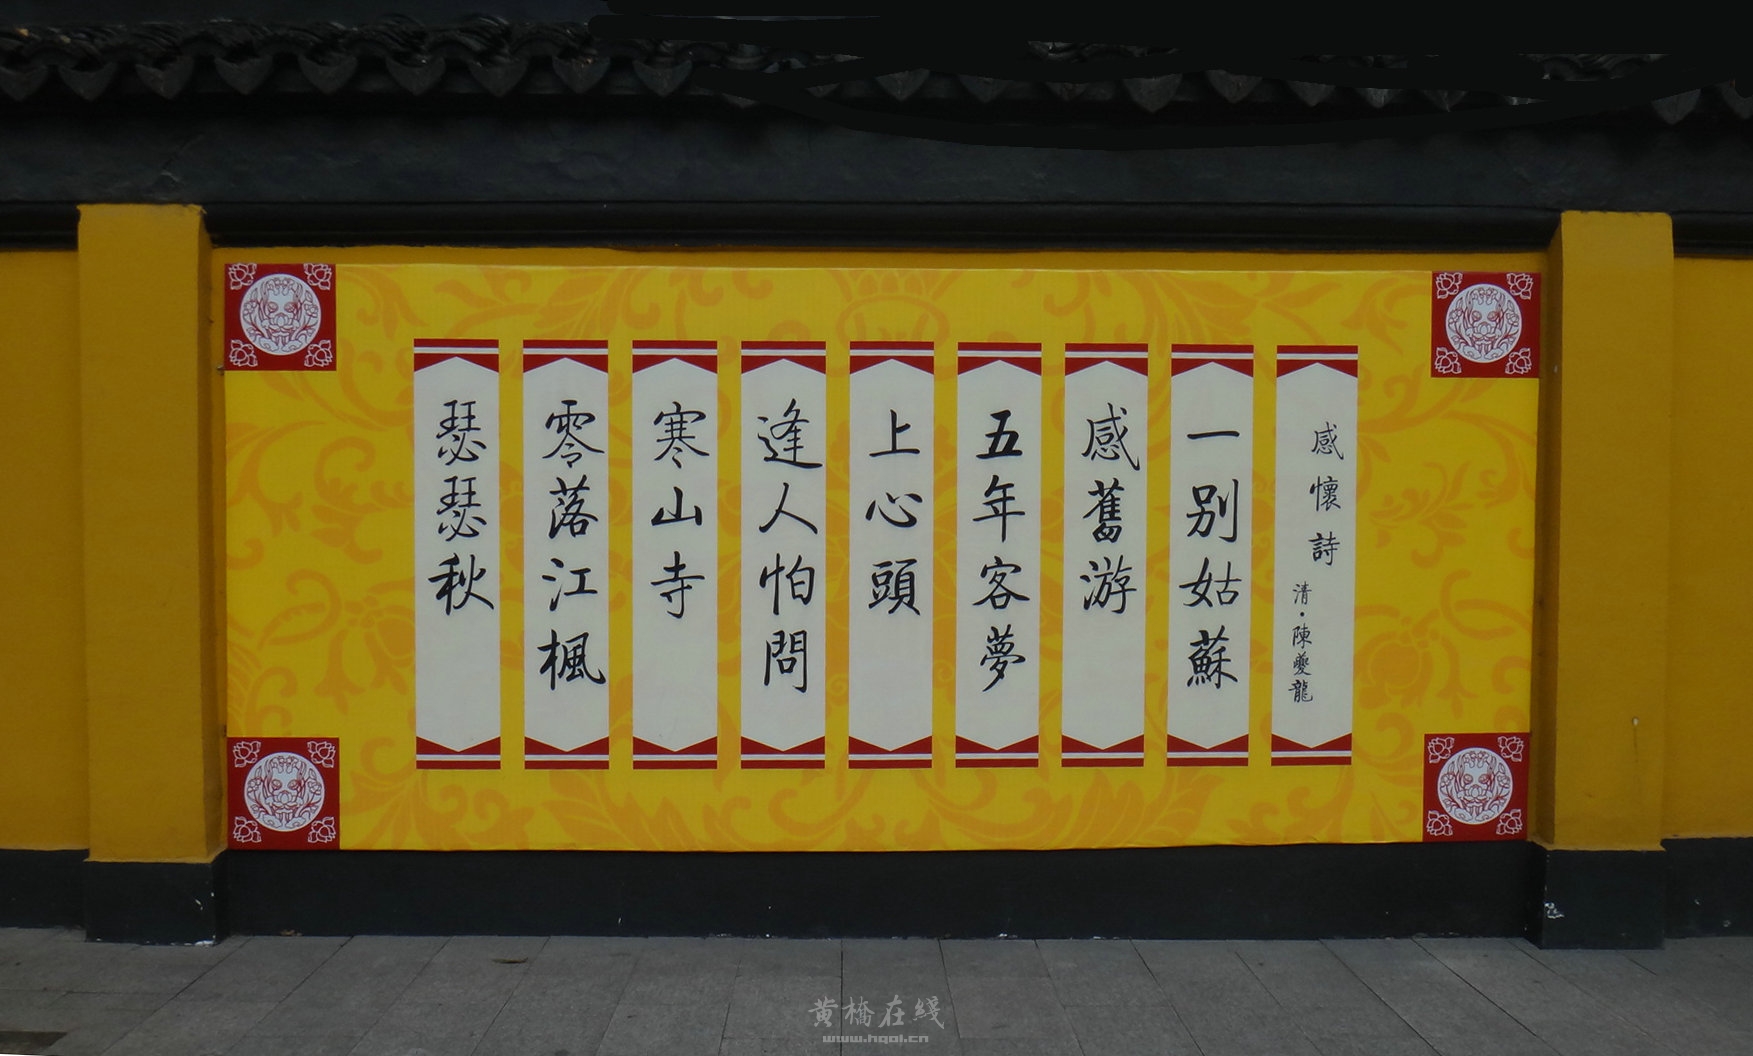 感懷詩
清·陳夔龍
一别姑蘇
感舊游
五年客夢
上心頭
逢人怕問
寒山寺
零落江楓
瑟瑟秋
黄橋在綫
www.hqol.cn